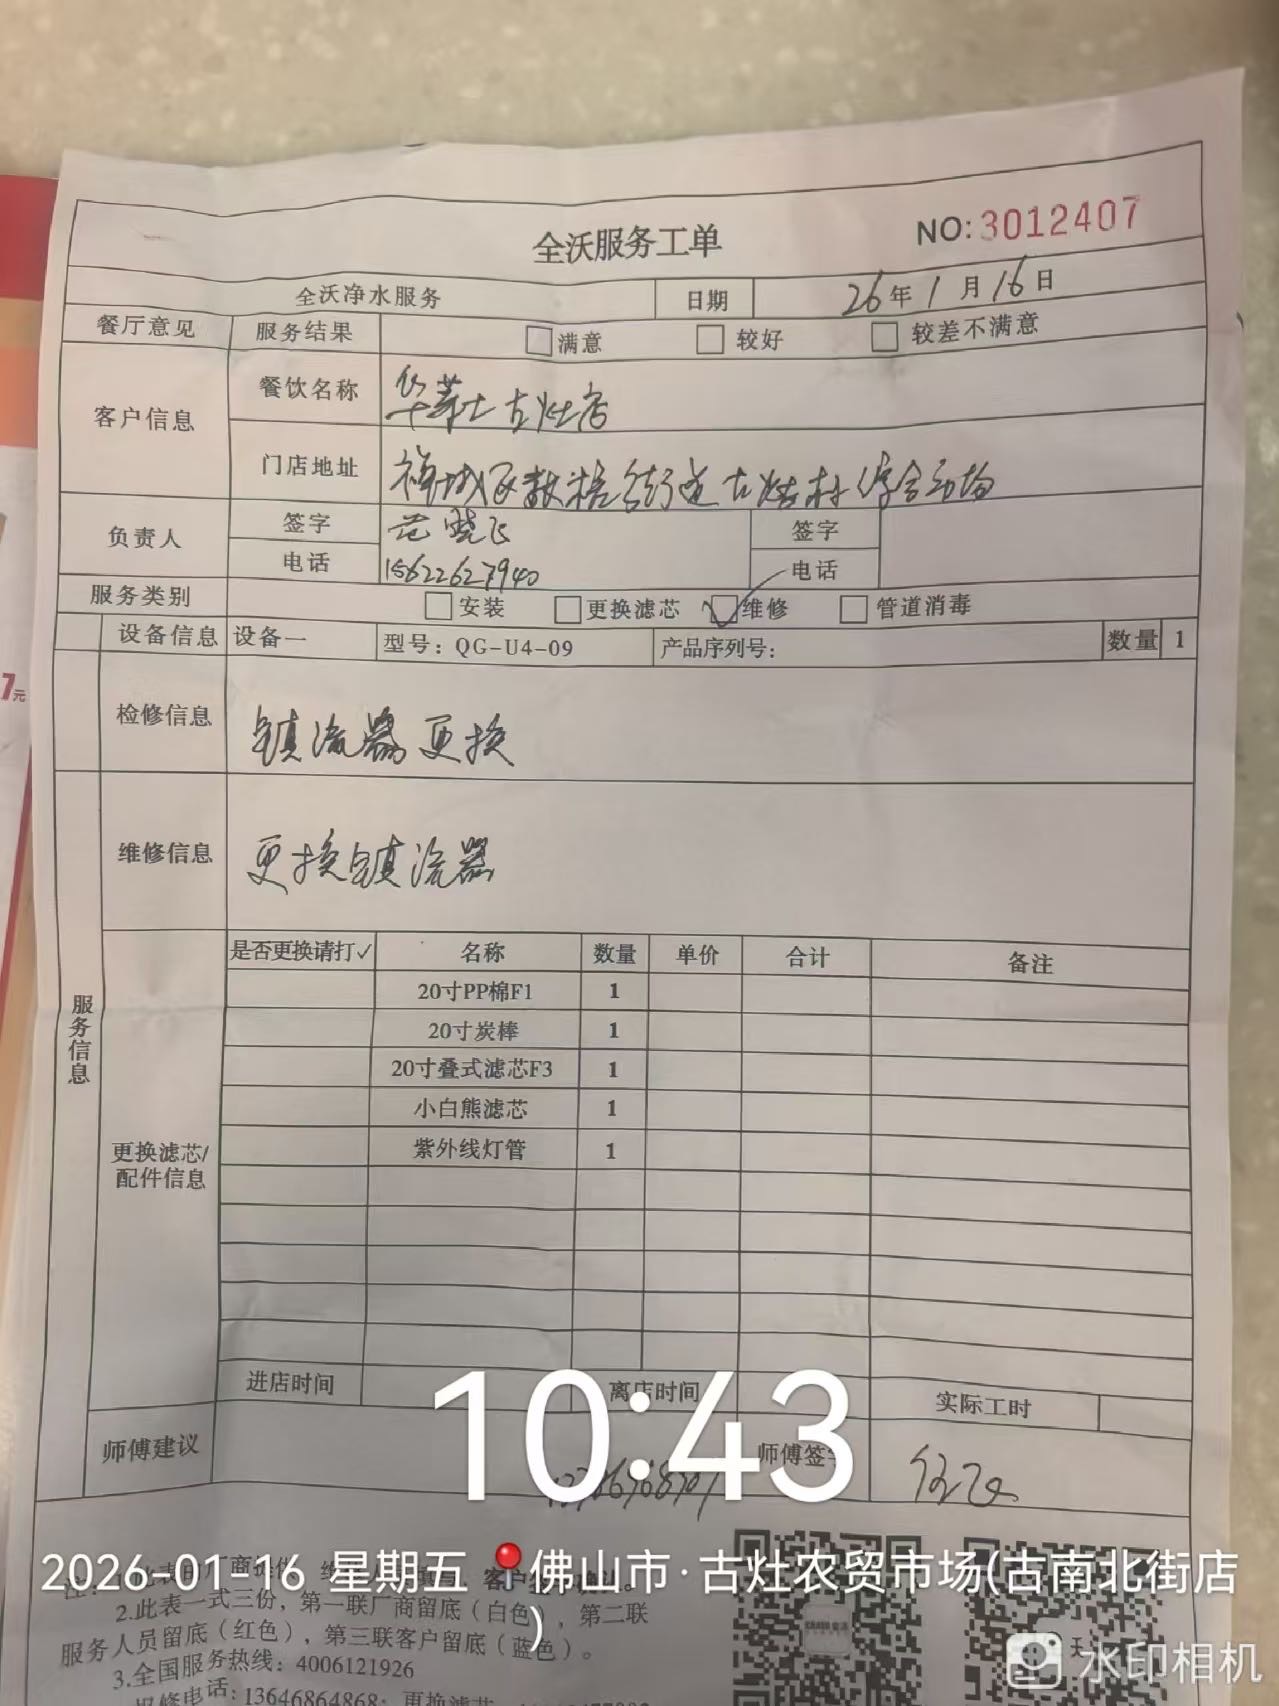 全沃服务工单
NO:3012407
全沃净水服务 日期 26年1月16日
餐厅意见 服务结果 满意 较好 较差不满意
客户信息 餐饮名称 华莱士古灶店
门店地址 禅城区 街道古灶村综合市场
负责人 签字 范晓飞 签字
电话 15622627940 电话
服务类别 安装 更换滤芯 维修 管道消毒
设备信息 设备一 型号：QG-U4-09 产品序列号： 数量 1
检修信息 镇流器更换
维修信息 更换镇流器
服务信息
更换滤芯/配件信息
是否更换请打✓ 名称 数量 单价 合计 备注
20寸PP棉F1 1
20寸炭棒 1
20寸叠式滤芯F3 1
小白熊滤芯 1
紫外线灯管 1
进店时间 离店时间 实际工时
10:43
师傅建议 师傅签字
2026-01-16 星期五 佛山市·古灶农贸市场(古南北街店)
2.此表一式三份，第一联厂商留底（白色），第二联
服务人员留底（红色），第三联客户留底（蓝色）。
3.全国服务热线：4006121926
报修电话：13646864868；更换滤芯
水印相机